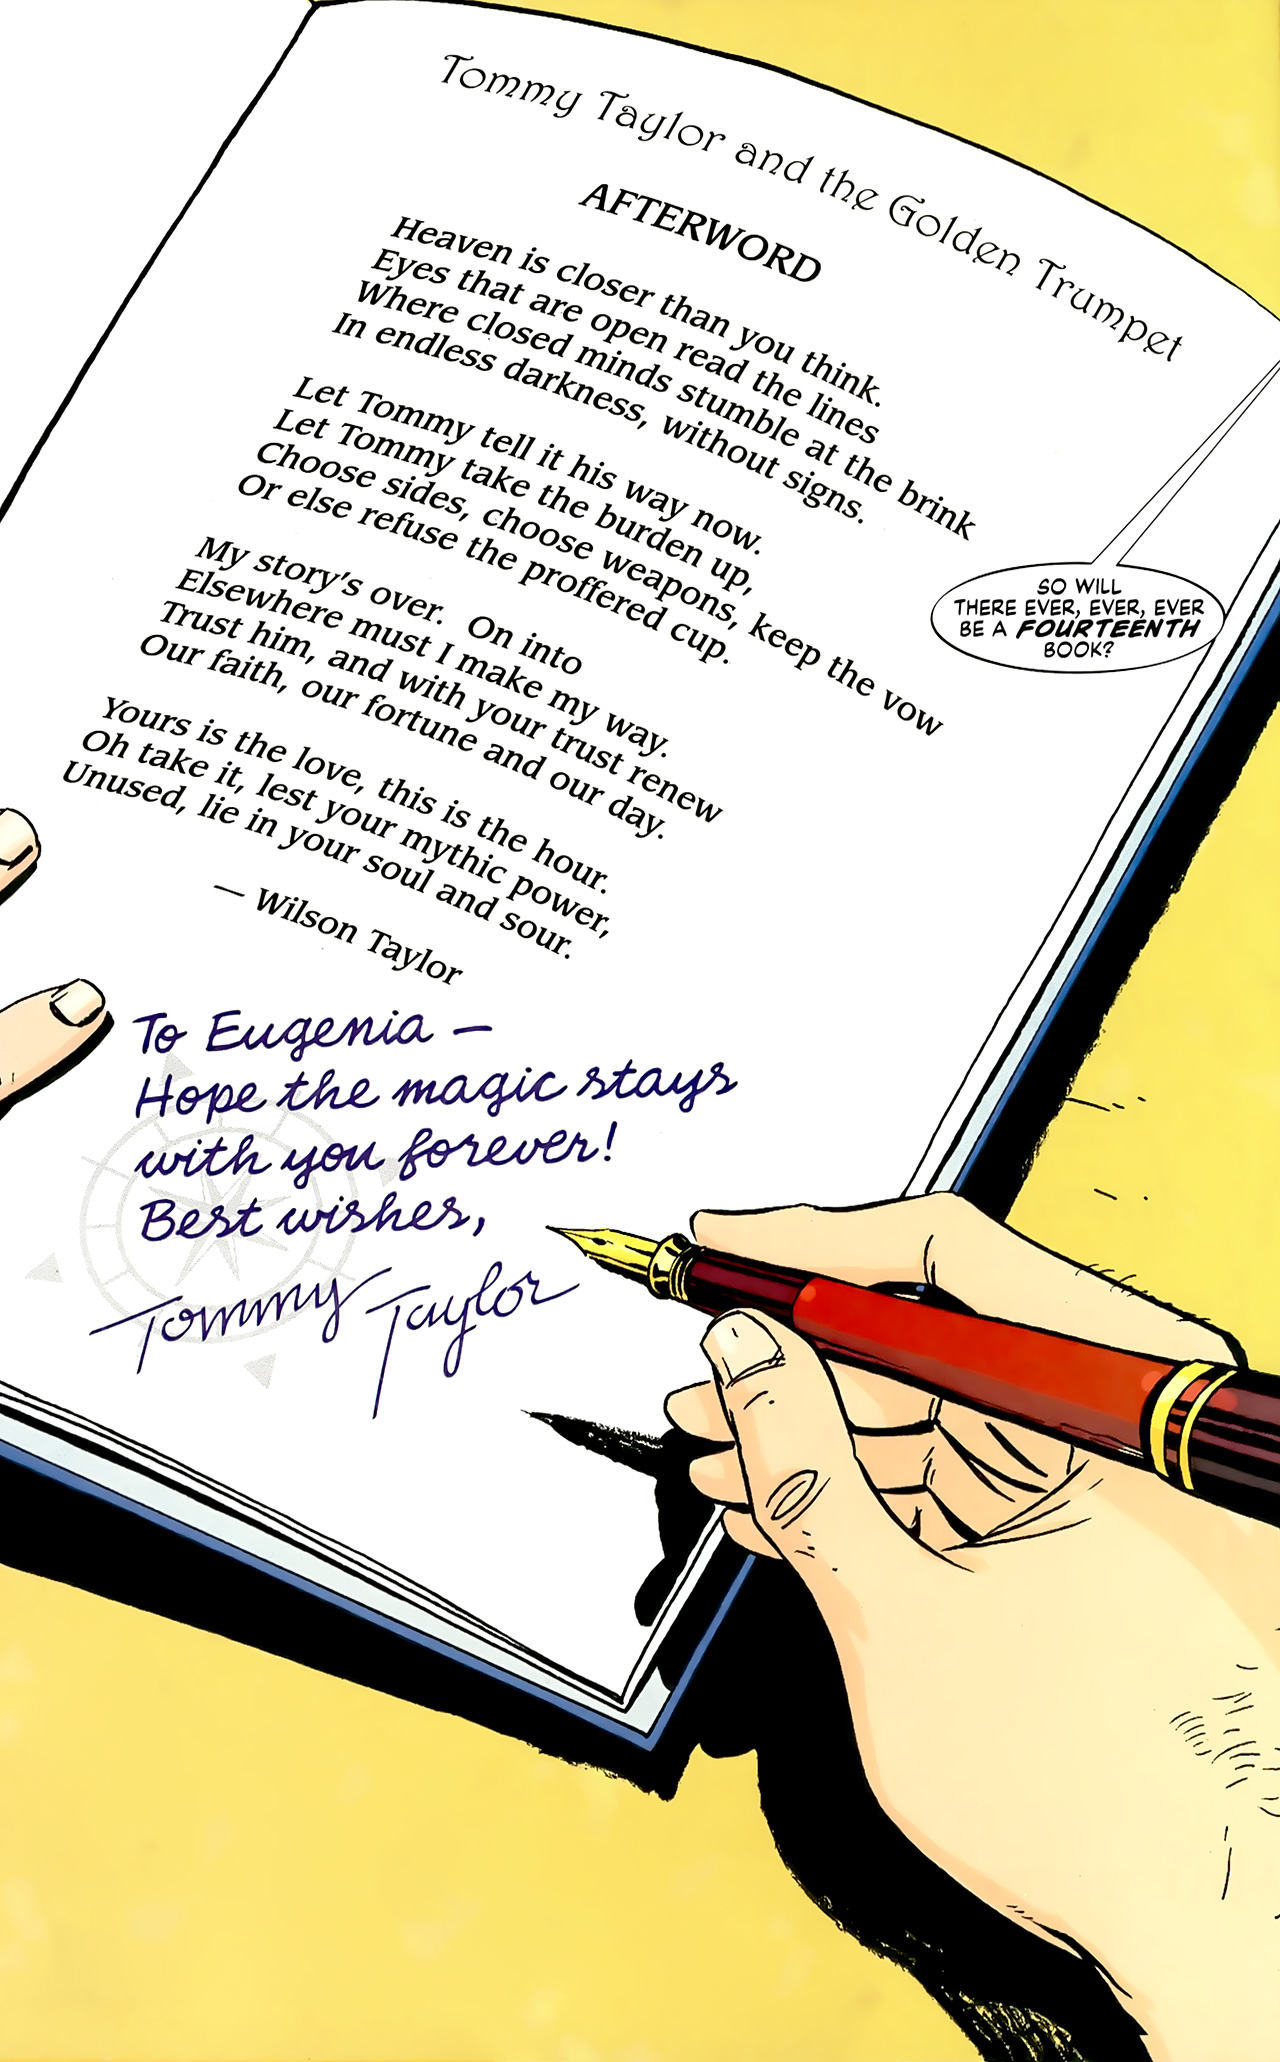 Tommy Taylor and the Golden Trumpet
AFTERWORD
Heaven is closer than you think.
Eyes that are open read the lines
Where closed minds stumble at the brink
In endless darkness, without signs.
Let Tommy tell it his way now.
Let Tommy take the burden up,
Choose sides, choose weapons, keep the vow
Or else refuse the proffered cup.
My story's over. On into
Elsewhere must I make my way.
Trust him, and with your trust renew
Our faith, our fortune and our day.
Yours is the love, this is the hour.
Oh take it, lest your mythic power,
Unused, lie in your soul and sour.
— Wilson Taylor
SO WILL
THERE EVER, EVER, EVER
BE A FOURTEENTH
BOOK?
To Eugenia —
Hope the magic stays
with you forever!
Best wishes,
Tommy Taylor